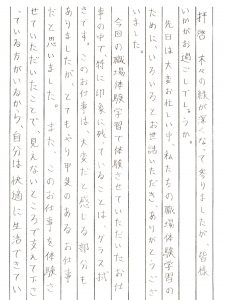 拝啓　木々の緑が深くなって参りましたが、皆様
いかがお過ごしでしょうか。
先日は大変お忙しい中、私たちの職場体験学習の
ために、いろいろとお世話いただきありがとうござ
いました。
今回の職場体験学習で体験させていただいたお仕
事の中で、特に印象に残っていることは、グラス拭
きです。このお仕事は大変だと感じる部分も
ありましたが、とてもやり甲斐のあるお仕事
だと思いました。また、このお仕事を体験さ
せていただいたことで、見えないところで支えて下さ
っている方がいるから、自分は快適に生活できてい